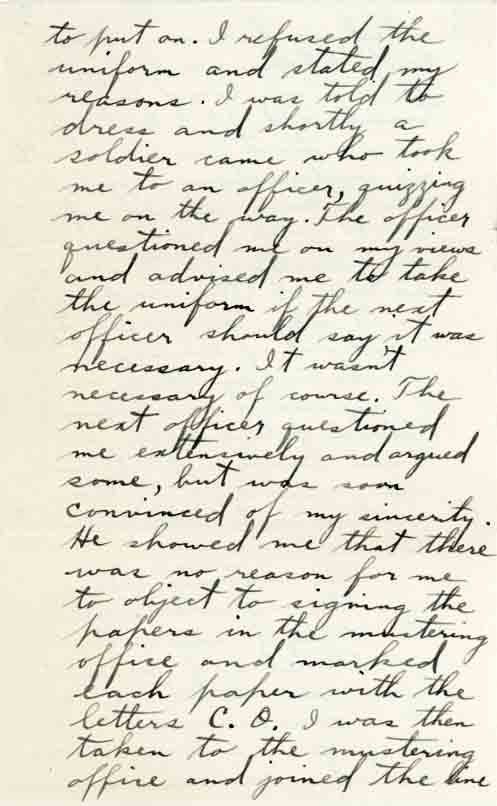 to put on. I refused the
uniform and stated my
reasons. I was told to
dress and shortly a
soldier came who took
me to an officer, quizzing
me on the way. The officer
questioned me on my views
and advised me to take
the uniform if the next
officer should say it was
necessary. It wasn't
necessary of course. The
next officer questioned
me extensively and argued
some, but was soon
convinced of my sincerity.
He showed me that there
was no reason for me
to object to signing the
papers in the mustering
office and marked
each paper with the
letters C. O. I was then
taken to the mustering
office and joined the line